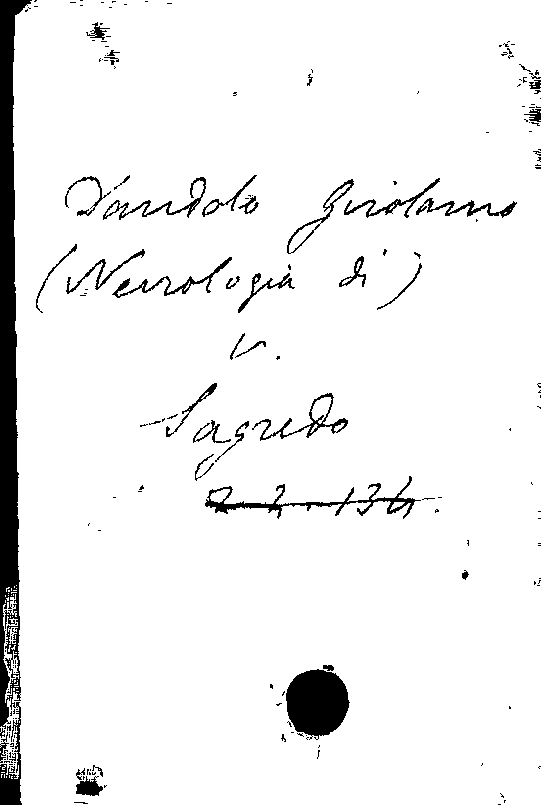 Dandolo Girolamo
(Necrologia di)
v.
Sagredo
2. 2. 134.